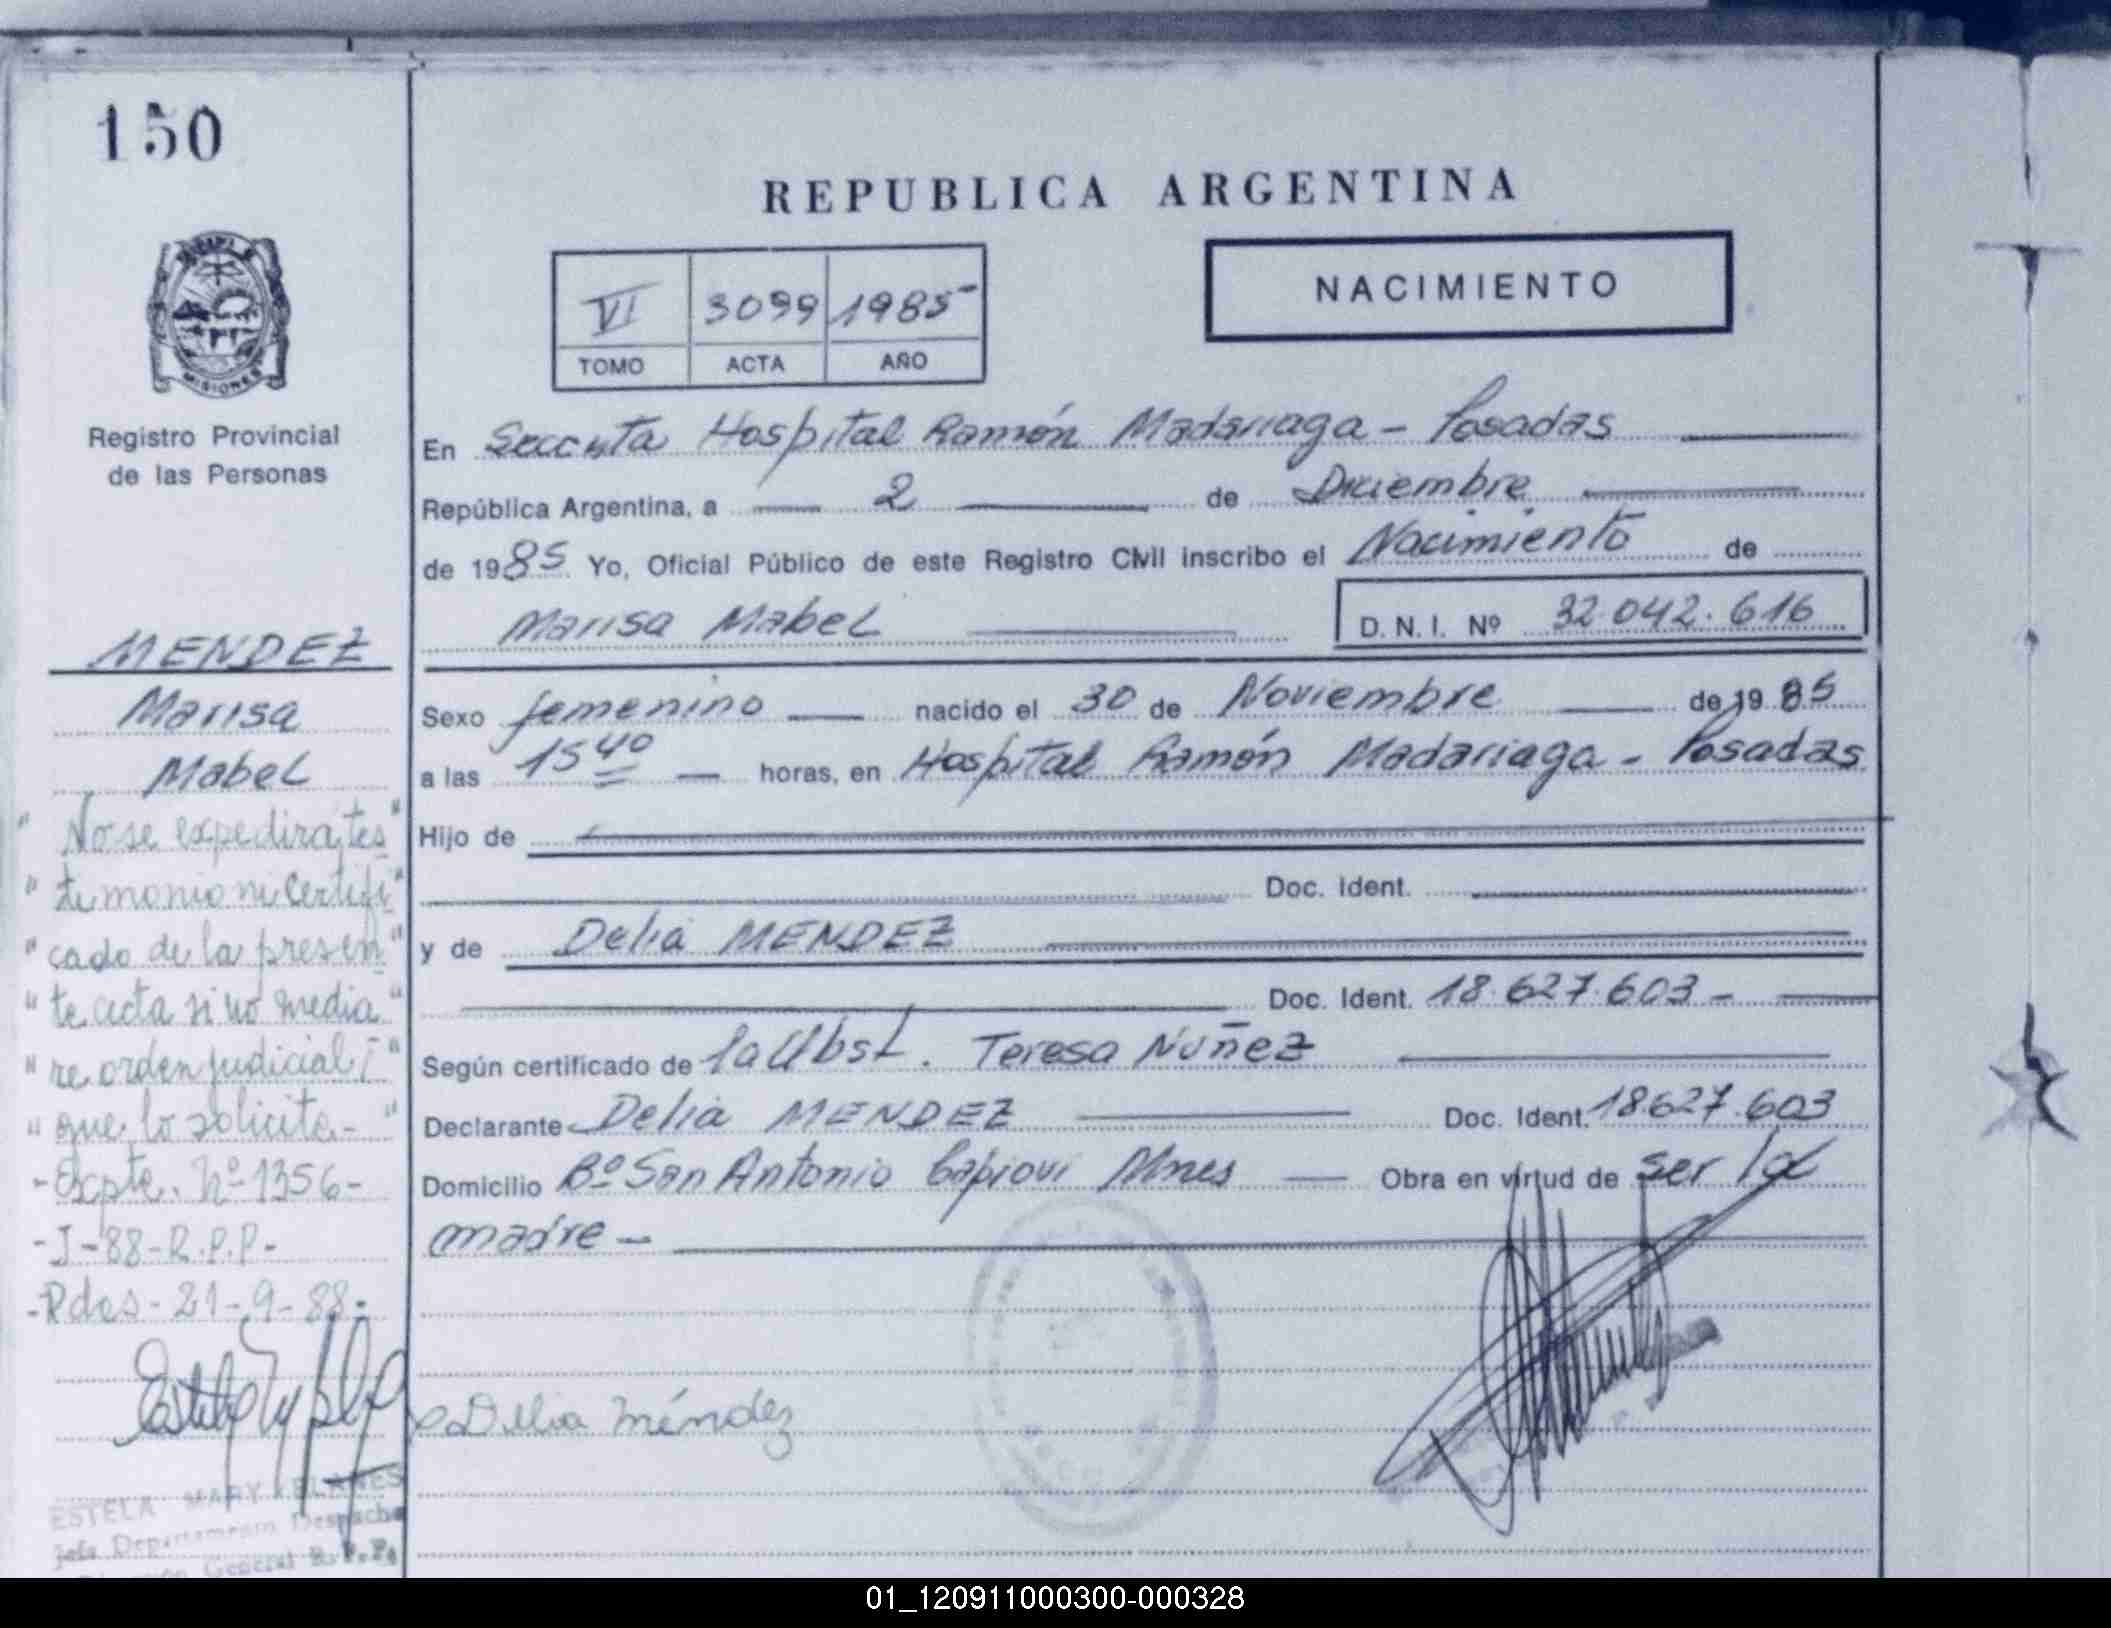 150
MISIONES
Registro Provincial
de las Personas
MENDEZ
Marisa
Mabel
" No se expedira tes "
" timonio ni certifi "
" cado de la presen "
" te acta si no media "
" re orden judicial, "
" que lo solicite.- "
- Expte. Nº 1356-
- J-88-R.P.P-
- Pdas- 21-9-88-
ESTELA MARY
Jefe Departamento Despacho
General R.P.P.
REPUBLICA ARGENTINA
VI 3099 1985
TOMO ACTA AÑO
NACIMIENTO
En Hospital Ramón Madariaga - Posadas
República Argentina, a 2 de Diciembre
de 1985 Yo, Oficial Público de este Registro Civil inscribo el Nacimiento de
Marisa Mabel D.N.I. Nº 32.042.616
Sexo femenino nacido el 30 de Noviembre de 1985
a las 15 40 horas, en Hospital Ramón Madariaga - Posadas
Hijo de
Doc. Ident.
y de Delia MENDEZ
Doc. Ident. 18.627.603 -
Según certificado de la Obst. Teresa Nuñez
Declarante Delia MENDEZ Doc. Ident. 18.627.603
Domicilio Bº San Antonio Capiovi Mnes Obra en virtud de ser la
madre -
Delia Méndez
01_120911000300-000328